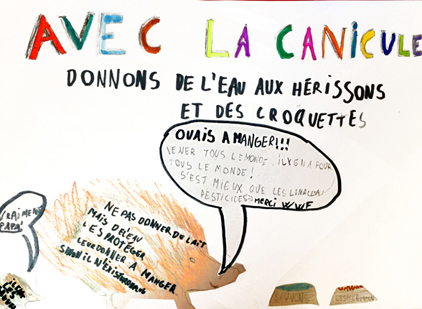 AVEC LA CANICULE
DONNONS DE L'EAU AUX HÉRISSONS
ET DES CROQUETTES
OUAIS A MANGER!!!
VENER TOUS LE MONDE IL Y EN A POUR
TOUS LE MONDE!
S'EST MIEUX QUE LES LIMACES
PESTICIDES merci WWF
VRAIMENT
PAPA
NE PAS DONNER DU LAIT
MAIS DE L'EAU
LES PROTÉGER
LEUR DONNER A MANGER
SINON IL N'EXISTERONS